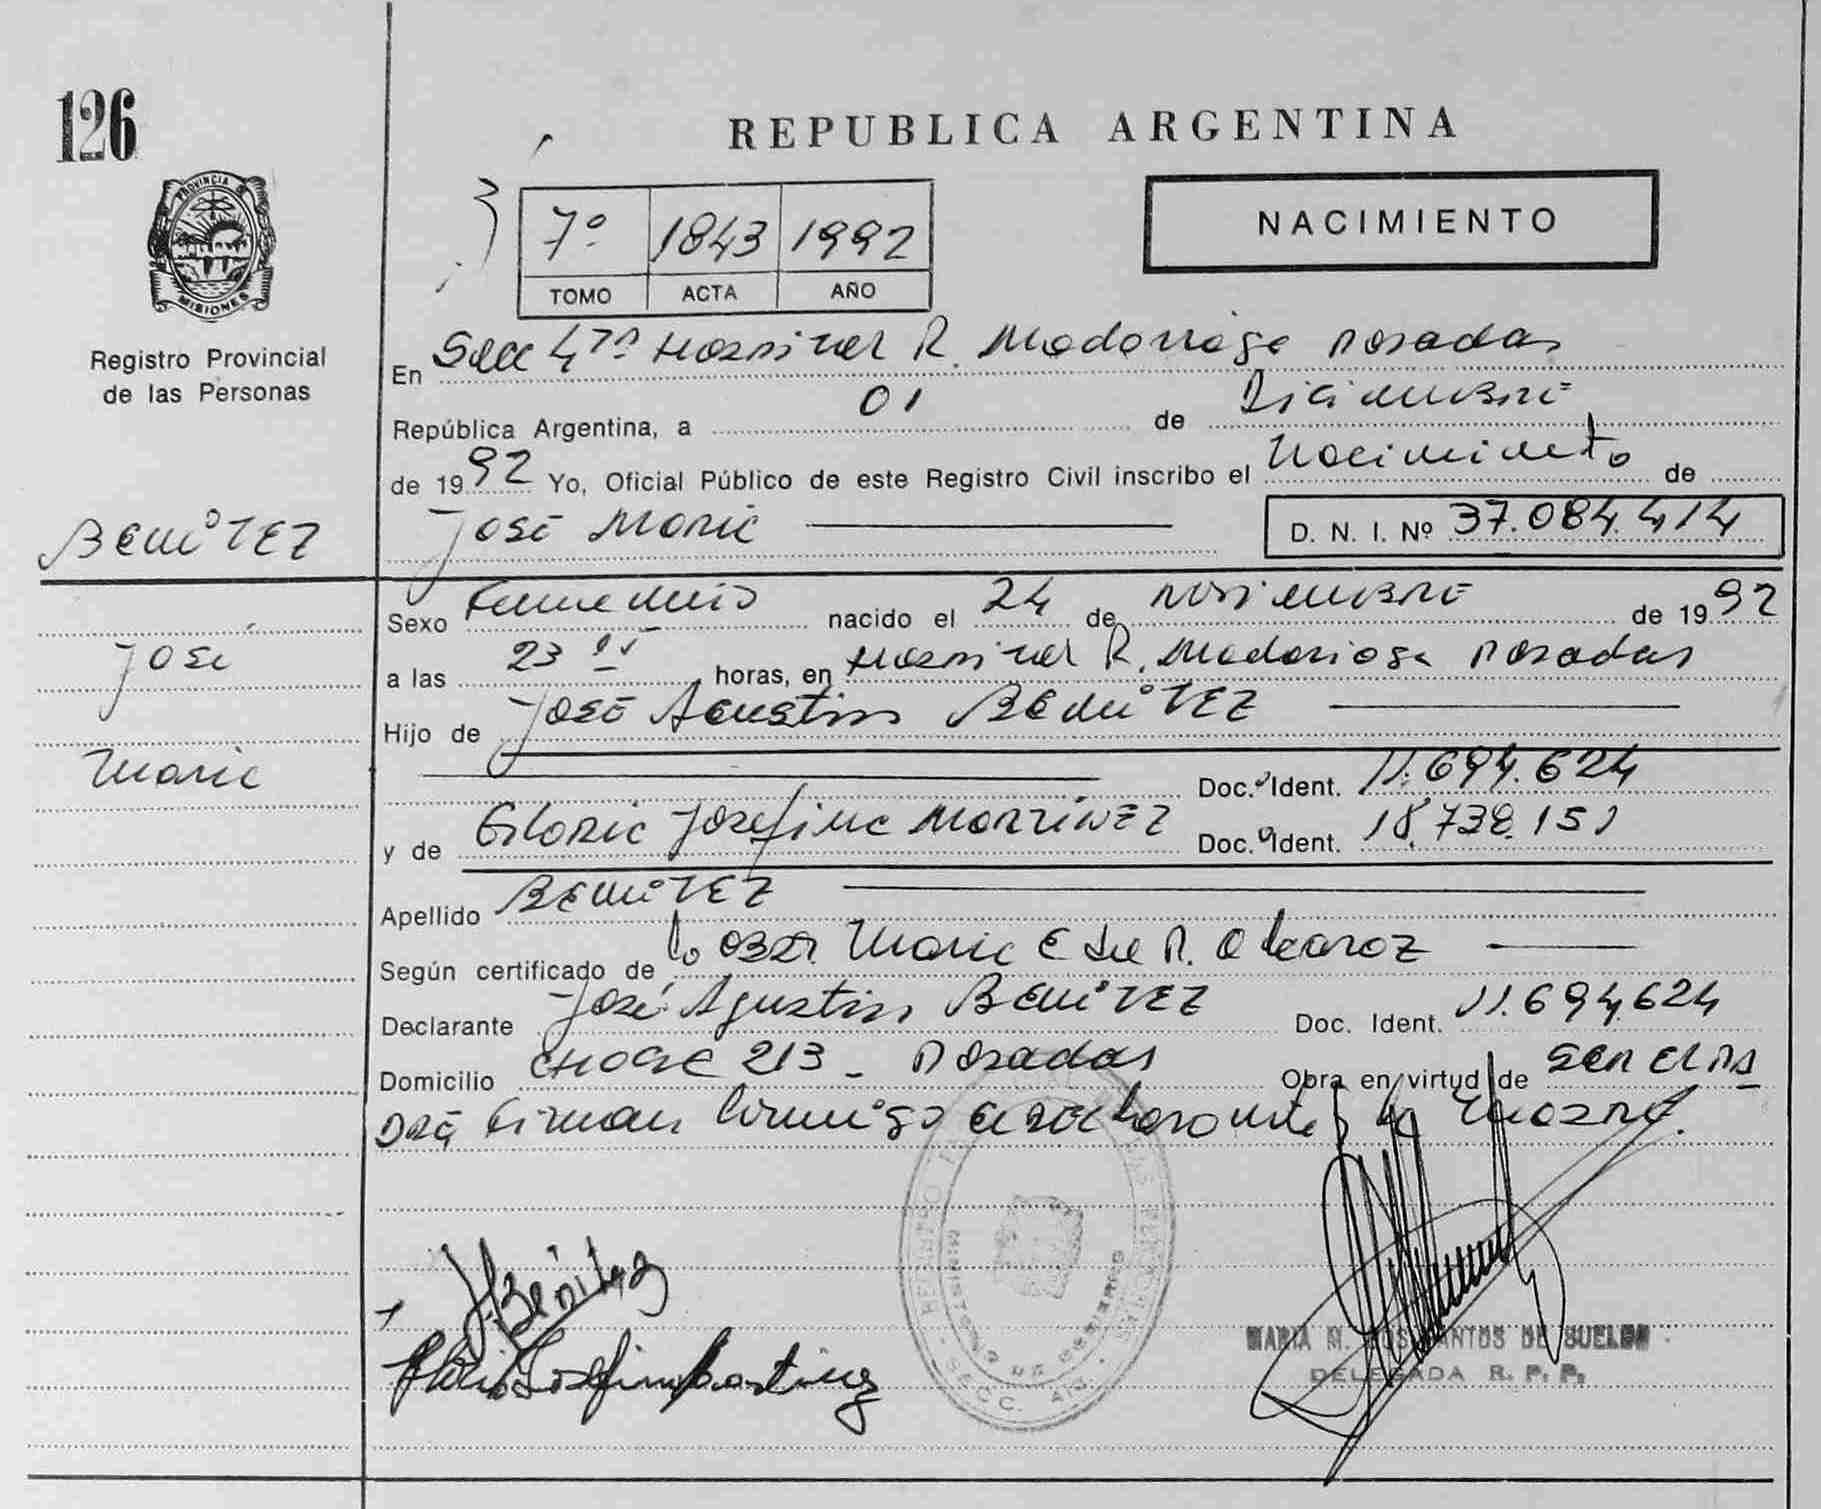 126
REPUBLICA ARGENTINA
PROVINCIA D
MISIONES
Registro Provincial
de las Personas
7º 1843 1992
TOMO ACTA AÑO
NACIMIENTO
En Secc 4ta Hospital R. Madariaga Posadas
República Argentina, a 01 de Diciembre
de 1992 Yo, Oficial Público de este Registro Civil inscribo el Nacimiento de
José Maria D. N. I. Nº 37.084.414
BENíTEZ
José
Maria
Sexo Femenino nacido el 24 de Noviembre de 1992
a las 23 horas, en Hospital R. Madariaga Posadas
Hijo de José Agustin BENíTEZ
Doc. Ident. 11.694.624
y de Gloria Josefina MARTíNEZ Doc. Ident. 18.738.151
Apellido BENíTEZ
Según certificado de la obst. Maria E de R. Alcaraz
Declarante José Agustin BENíTEZ Doc. Ident. 11.694.624
Domicilio 213 - Posadas Obra en virtud de ser el pa
dre firman conmigo el declarante y la madre.
Benitez
Josefina Martinez
MINISTERIO DE GOBIERNO
SECC. 4a.
MARIA M. DOS SANTOS DE SUELDO
DELEGADA R. P. P.